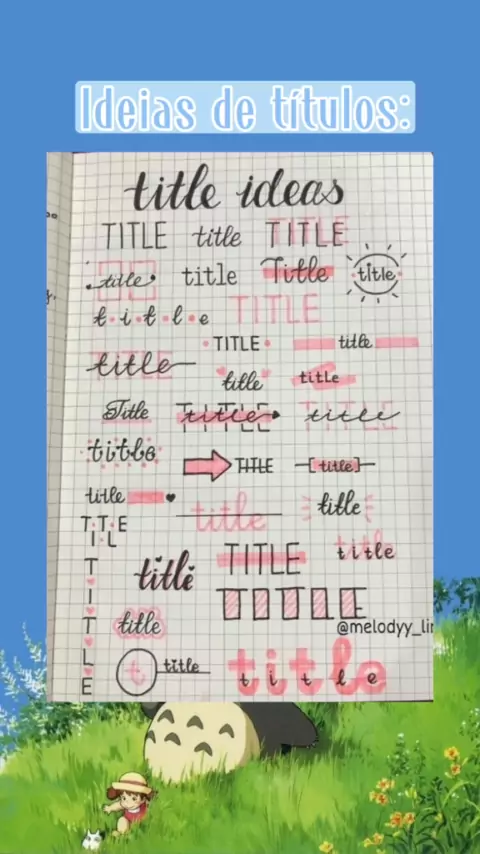 Ideias de títulos:
title ideas
TITLE title TITLE
title title Title title
title TITLE
TITLE title
title
title title
Title title TITLE title
title
TITLE [title]
title title
title
TITLE
TITLE title
title
TITLE
TITLE
title
@melodyy_lin
t title
title
title